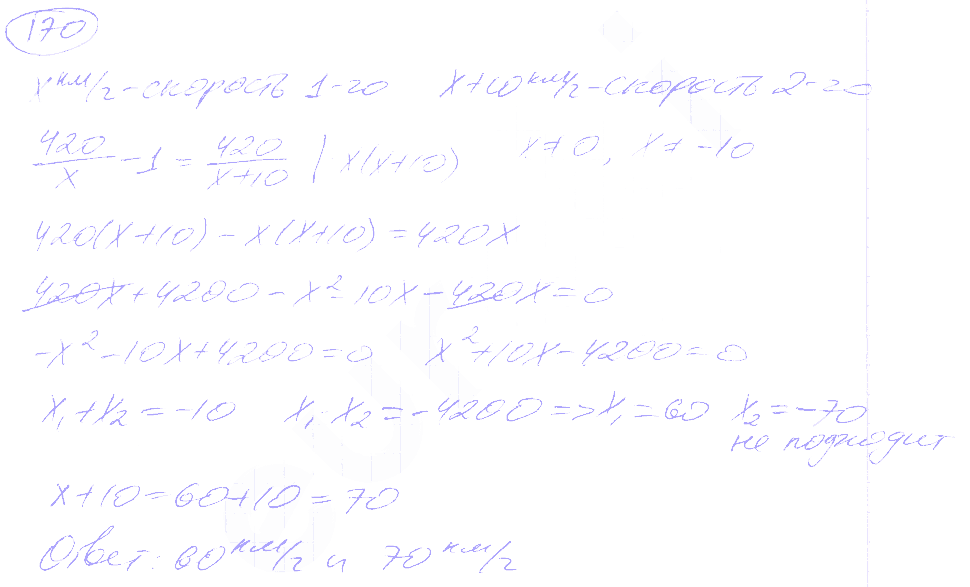 170
x км/г - скорость 1-го    x+10 км/г - скорость 2-го
420/x - 1 = 420/(x+10) | x(x+10)    x ≠ 0, x ≠ -10
420(x+10) - x(x+10) = 420x
420x + 4200 - x² - 10x - 420x = 0
-x² - 10x + 4200 = 0    x² + 10x - 4200 = 0
x₁ + x₂ = -10    x₁ · x₂ = -4200 => x₁ = 60    x₂ = -70
не подходит
x + 10 = 60 + 10 = 70
Ответ: 60 км/г и 70 км/г